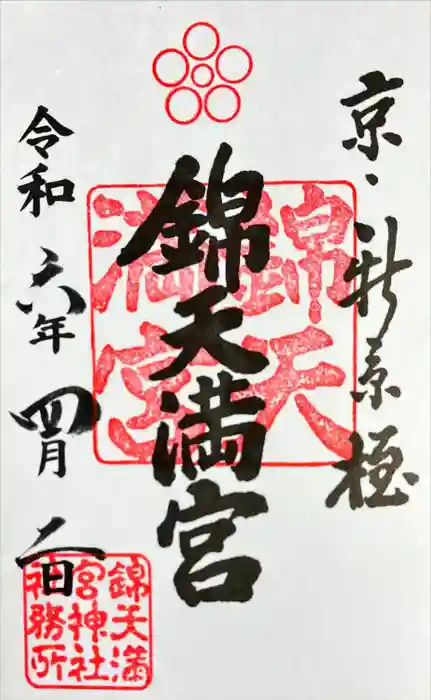 京・新京極
錦天満宮
錦天満宮
令和六年四月二日
錦天満宮神社社務所